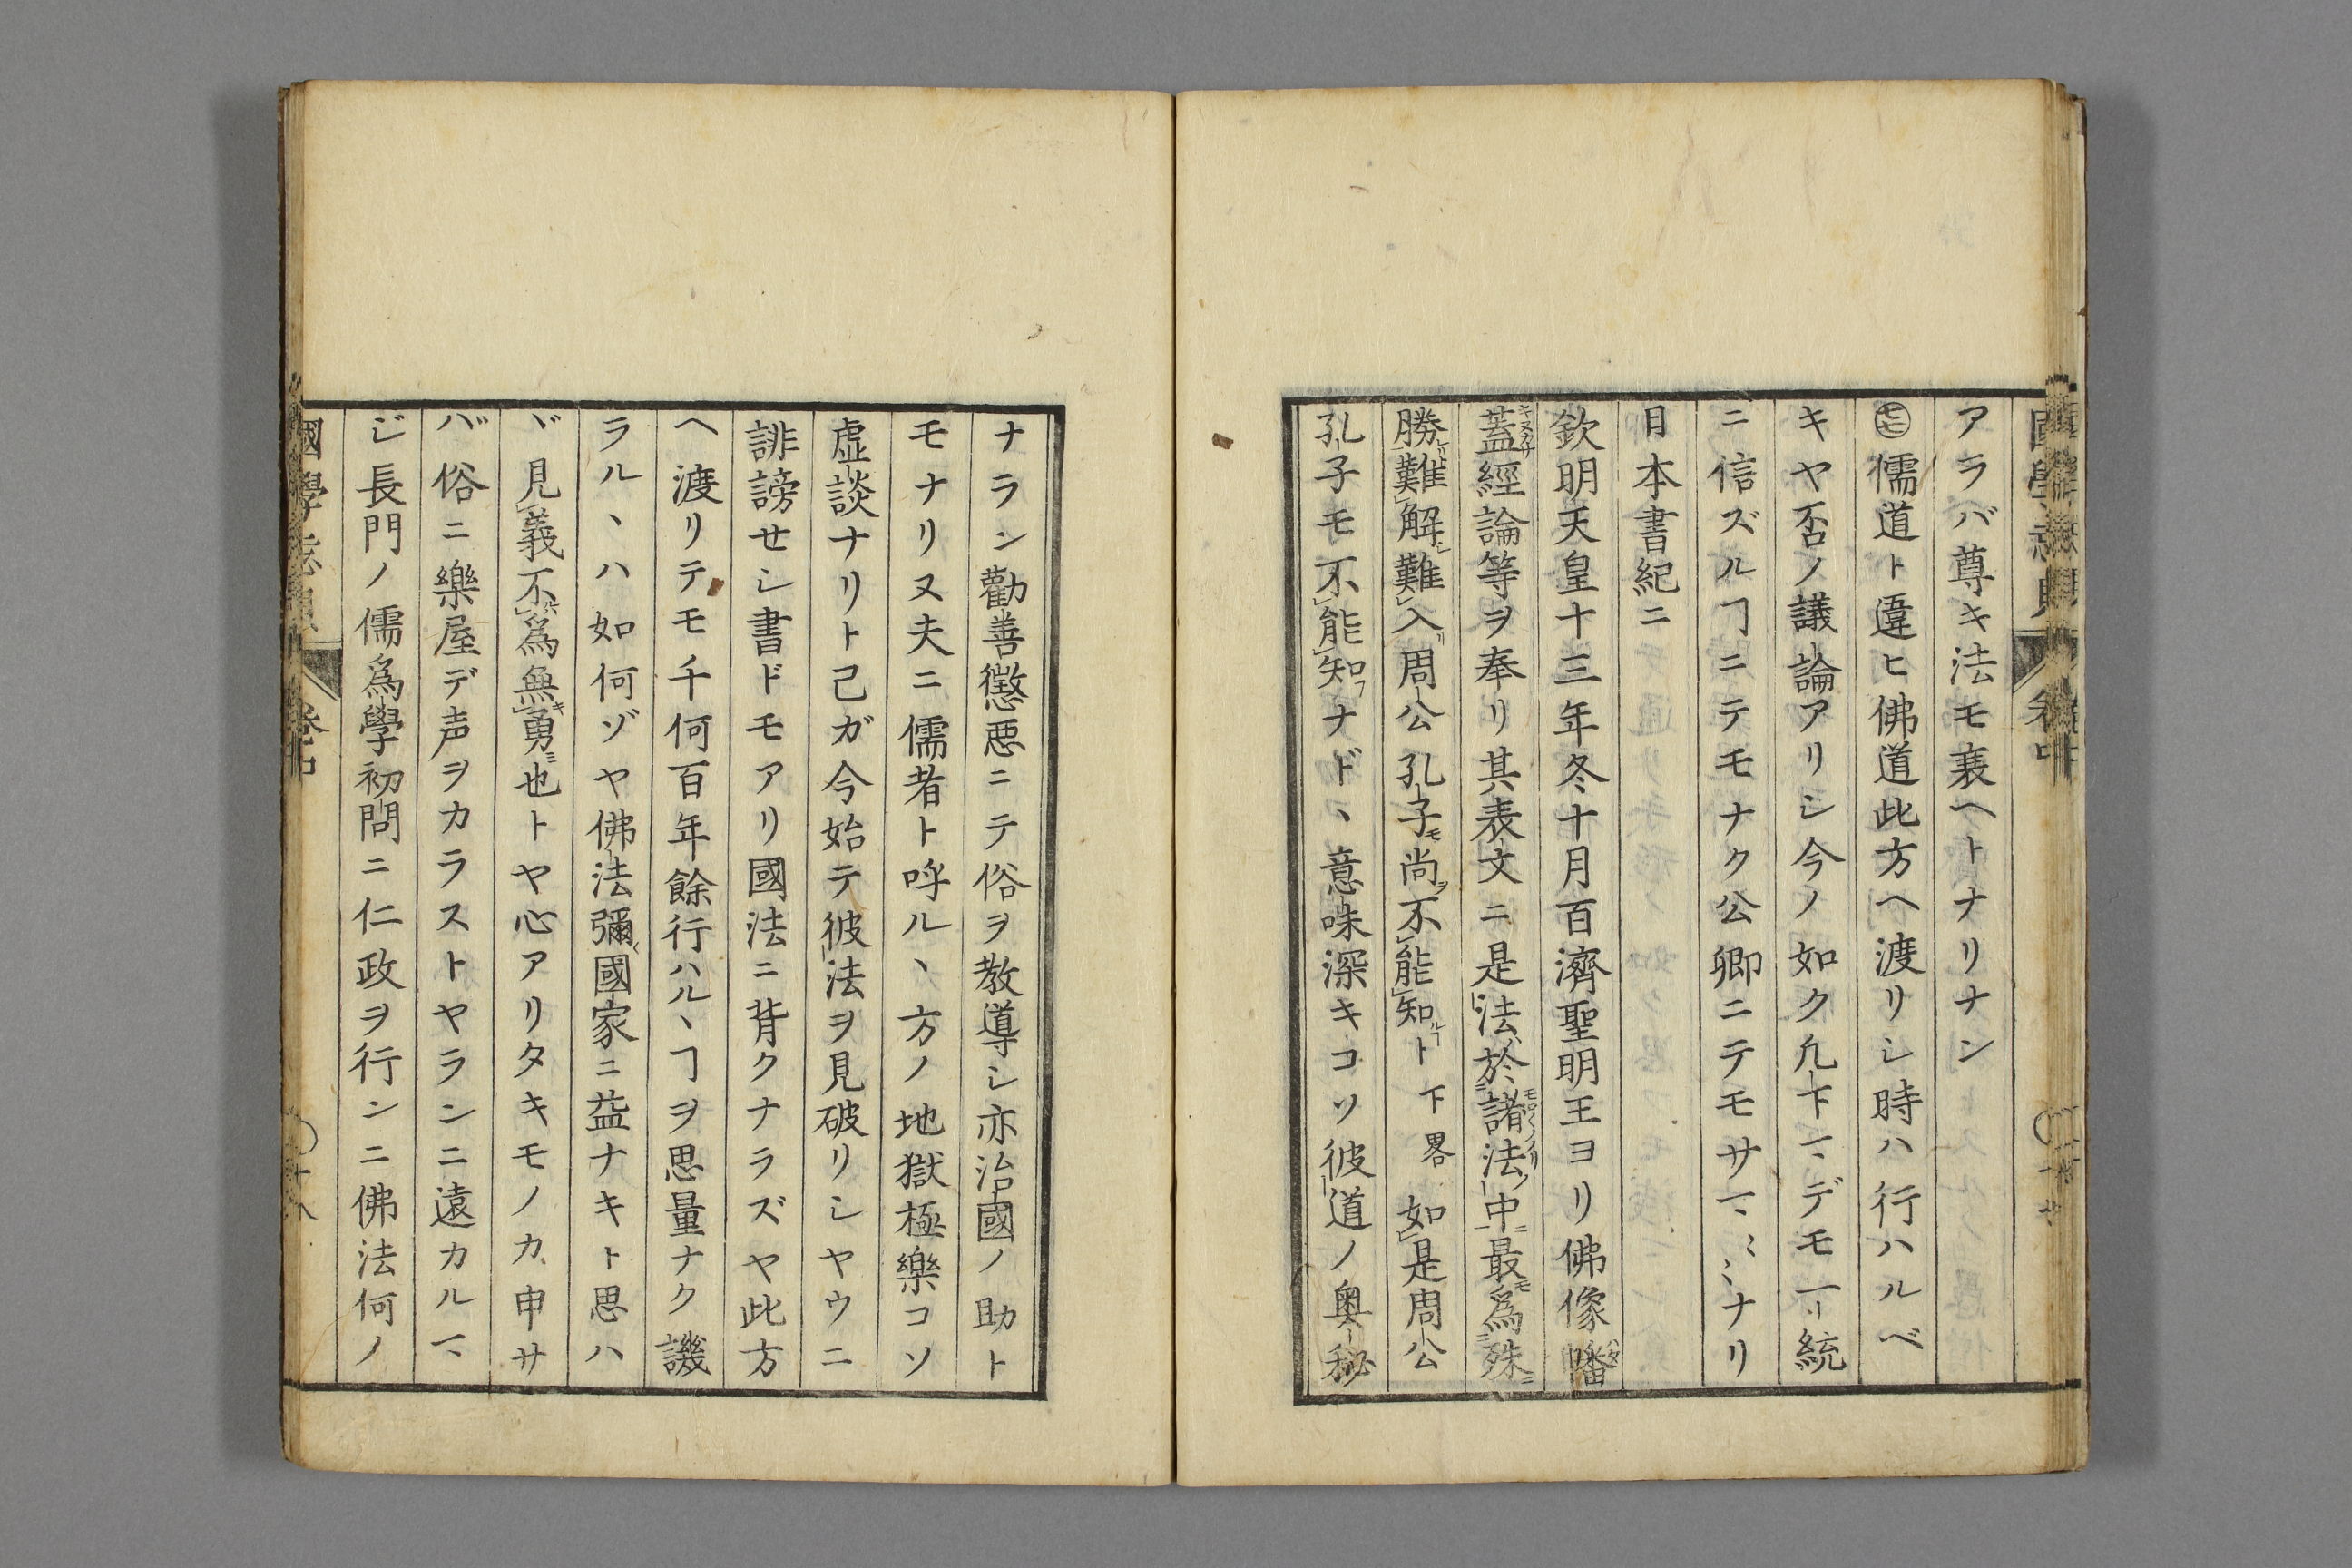 アラバ尊キ法モ衰ヘトナリナン
㊆儒道ト違ヒ佛道此方ヘ渡リシ時ハ行ハルベ
キヤ否ノ議論アリシ今ノ如ク凡下ㇸデモ一リ統
ニ信ズルヿニテモナク公卿ニテモサㇸミミナリ
日本書紀ニ
欽明天皇十三年冬十月百濟聖明王ヨリ佛像幡
蓋經論等ヲ奉リ其表文ニ是法於諸法中最爲殊
勝難解難入周公孔子尚不能知ト下畧如是周公
孔子モ不能知ナド、意味深キコソ彼道ノ奥秘
ナラン勸善懲悪ニテ俗ヲ教導シ亦治國ノ助ト
モナリヌ夫ニ儒者ト呼ル、方ノ地獄極樂コソ
虚談ナリト己ガ今始テ彼法ヲ見破リシヤウニ
誹謗せシ書ドモアリ國法ニ背クナラズヤ此方
ヘ渡リテモ千何百年餘行ハル、ヿヲ思量ナク譏
ラル、ハ如何ゾヤ佛法彌國家ニ益ナキト思ハ
ヾ見義不爲無勇也トヤ心アリタキモノカ申サ
バ俗ニ樂屋デ声ヲカラストヤランニ遠カルマ
ジ長門ノ儒爲學初問ニ仁政ヲ行ンニ佛法何ノ